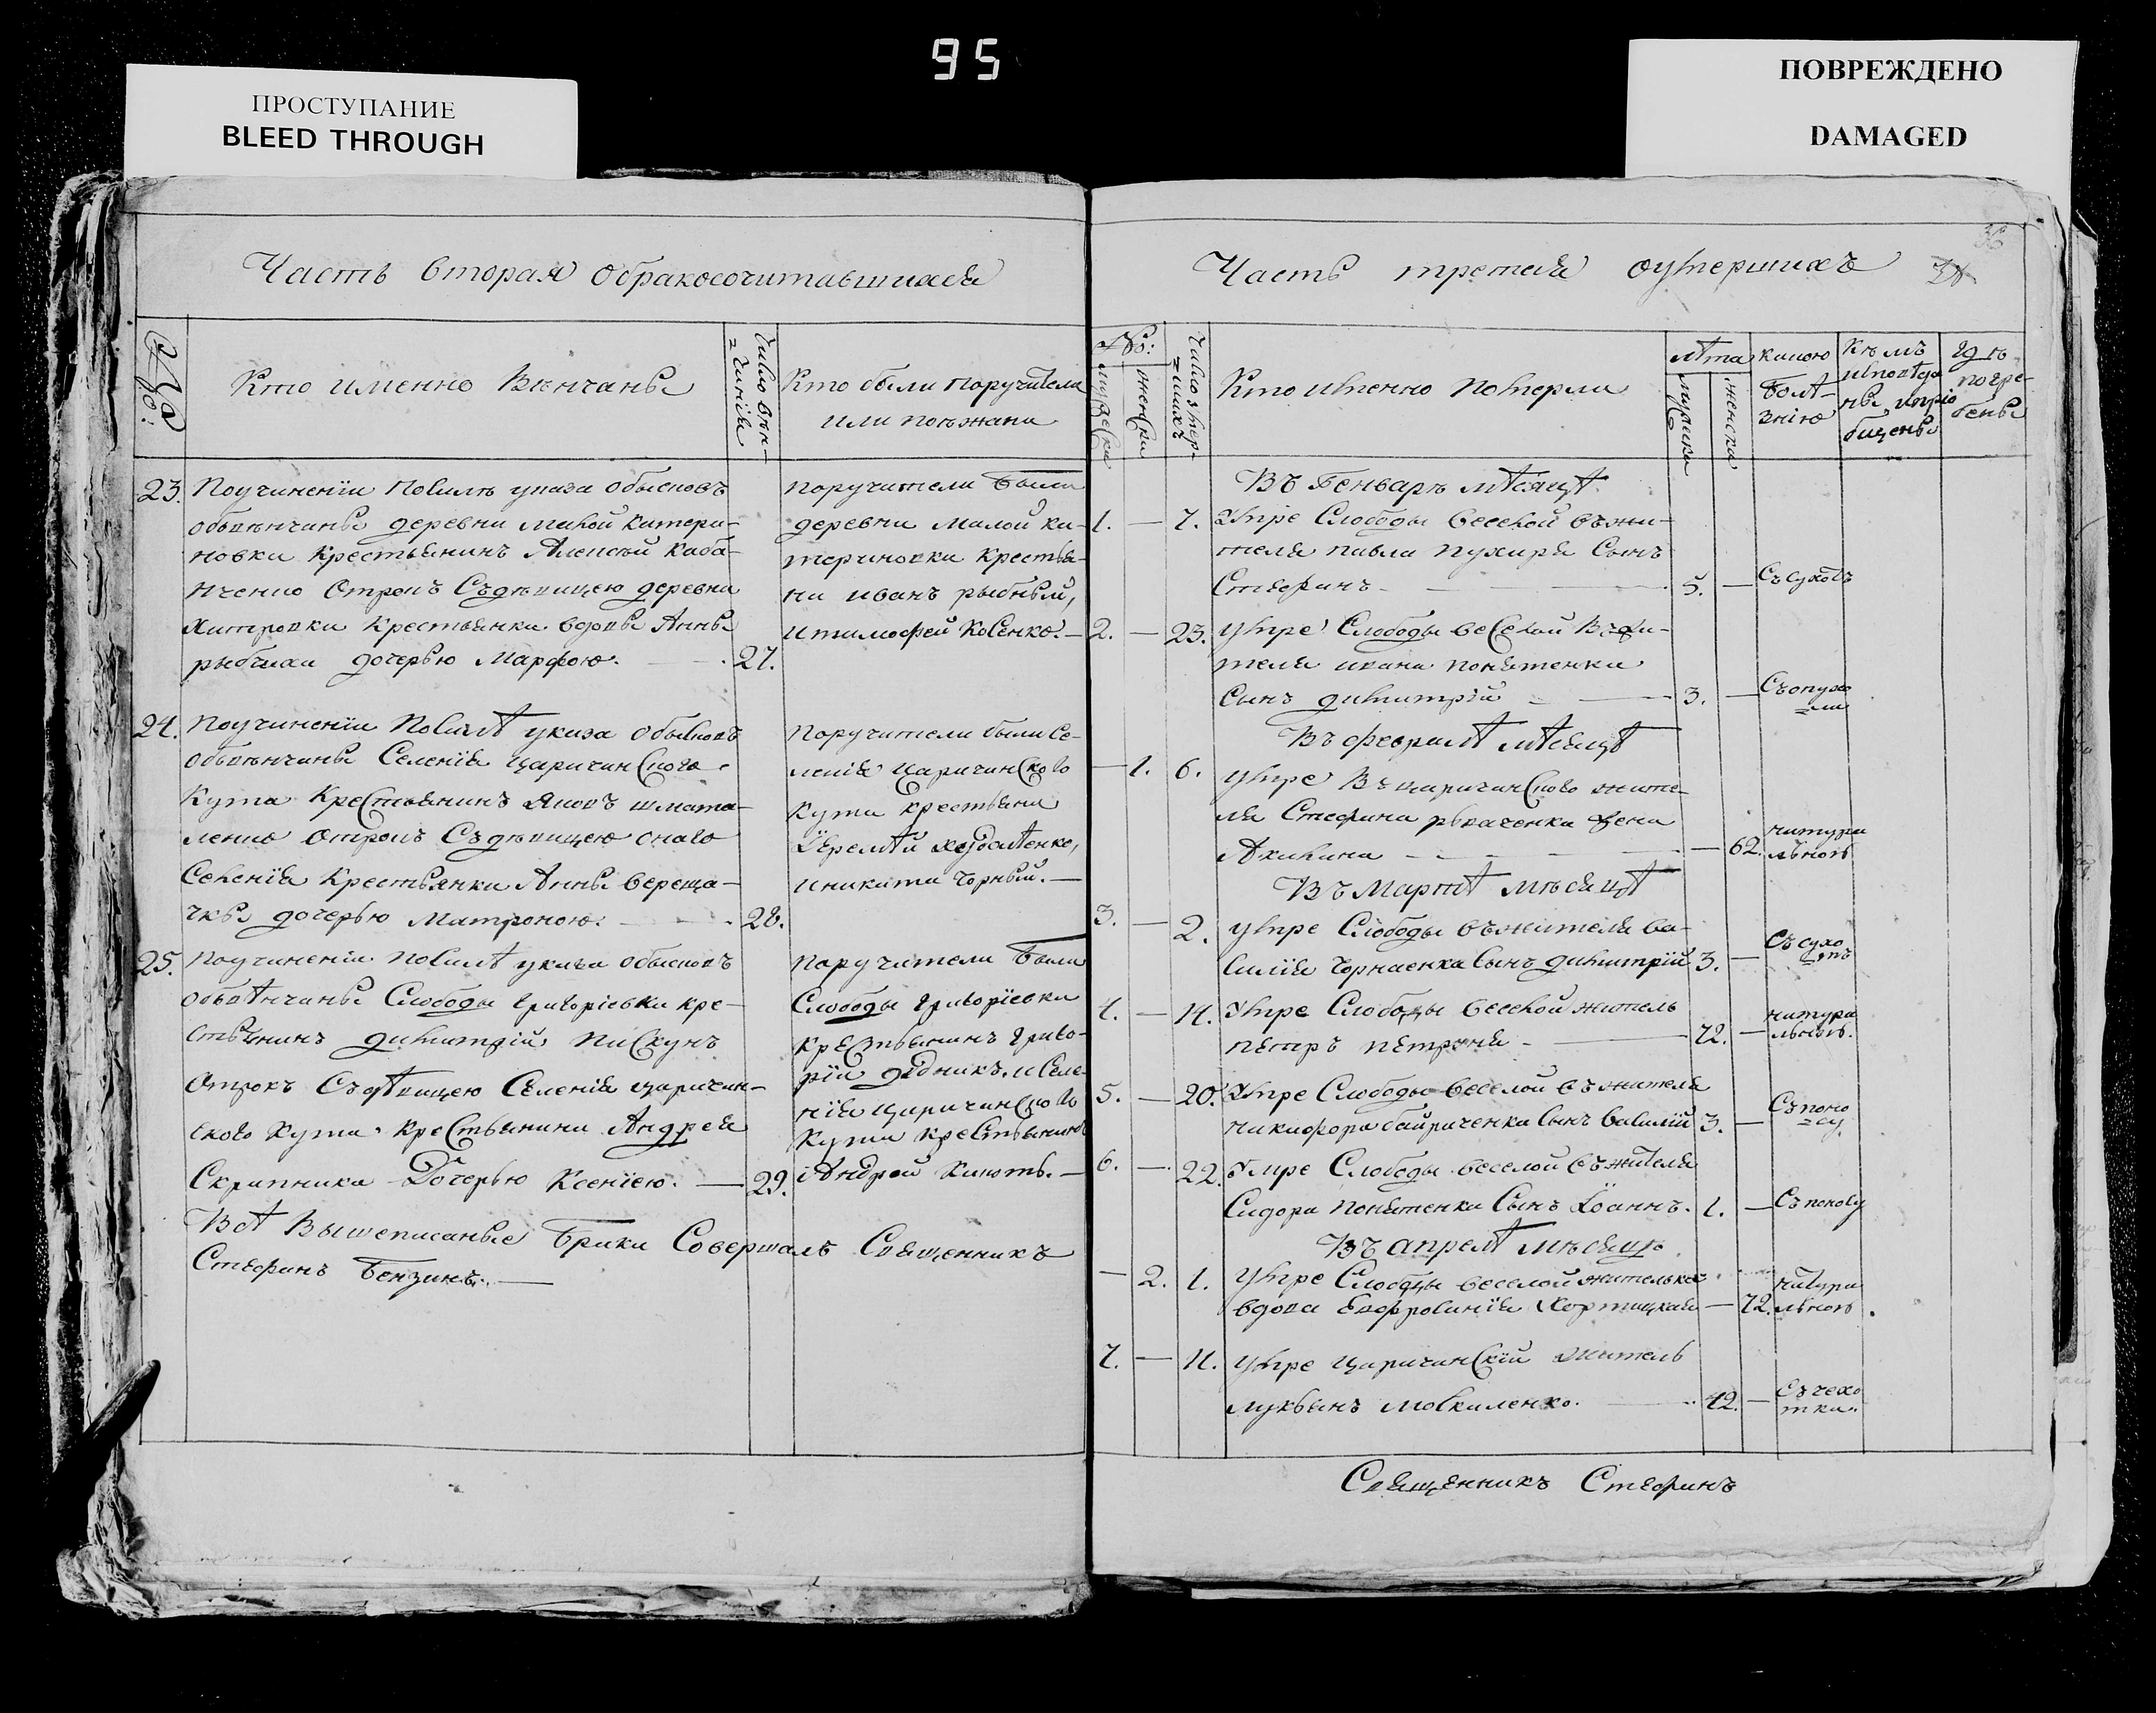 95
ПРОСТУПАНИЕ
BLEED THROUGH
ПОВРЕЖДЕНО
DAMAGED
Часть вторая обракосочитавшихся
№:
Кто именно венчаны
Число вѣн-
чаній
Кто были поручители
или поезжани
23. Поучиненіи посилѣ указа обысковъ
обвѣнчаны деревни малой катери-
новки крестьянинъ Алексѣй каба-
нченко отрокъ Съдѣвицею деревни
Хитровки крестьянки вдовы Анны
рыбчихи дочерью Марфою. 27.
поручители были
деревни малой ка-
териновки крестья-
ни иванъ рыбный,
итимофей Косенко.
24. Поучиненіи Посилѣ указа обысковъ
обвѣнчаны Селенія царичинского
Кута Крестьянинъ Яковъ шмата-
ленко отрокъ Съдѣвицею оного
Селенія Крестьянки Анны вереща-
чкы дочерью Матроною. 28.
Поручители были Се-
ленія Царичинского
Кута крестьяни
иникита Чорный.
25. Поучиненіи Посилѣ указа обысковъ
обвѣнчаны Слободы григоріевки кре-
стьянинъ димитрій Пискунъ
Отрокъ Съдѣвицею Селенія царичин-
ского Кута крестьянина Андрея
Скрипника Дочерью Ксеніею. 29.
Поручители были
Слободы григоріевки
крестьянинъ григо-
рій дѣдникъ, и Селе-
нія царичинского
Кута крестьянинъ
Андрей
Всѣ вышеписаные браки Совершалъ Священникъ
Стефанъ Бензинъ.
Часть третая оумершихъ
36
№:
мужески
женски
Число умер-
шихъ
Кто именно померли
лѣта
мужски
женски
какою
болѣ-
знію
Кѣмъ
исповѣда
ны, ипріо
бщены
гдѣ
погре-
бены
Въ Генварѣ мѣсяцѣ
1. — 7. Умре Слободы веселой вжи-
теля павла пухиря Сынъ
Стефанъ 5. — Съсухотъ
2. — 23. умре Слободы веселой вжи-
теля ивана понятенка
Сынъ димитрій 3. — Съопухо
ли
Въ февралѣ мѣсяцѣ
— 1. 6. умре Въцаричинского жите-
ля Стефана ркаченка жена
Акилина — 62. натура
льною
Въ Мартѣ мѣсяцѣ
3. — 2. умре Слободы въжителя ва-
силія Чорнаенка Сынъ димитрій 3. — Съсухо
тъ
4. — 14. Умре Слободы веселой житель
петръ петруня 72. — натура
льною.
5. — 20. Умре Слободы веселой въжителя
никифора байраченка Сынъ василій 3. — Съпоно
су
6. — 22. Умре Слободы веселой въжителя
Сидора понятенка Сынъ Іоаннъ. 1. — Съпоносу
Въ апрелѣ мѣсяцѣ
— 2. 1. Умре Слободы веселой жителька
вдова Евфросинія Хортицкая — 72. натура
льною.
7. — 11. умре царичинскій житель
лукьянъ москаленко. 42. — Съчехо
тки.
Священникъ Стефанъ